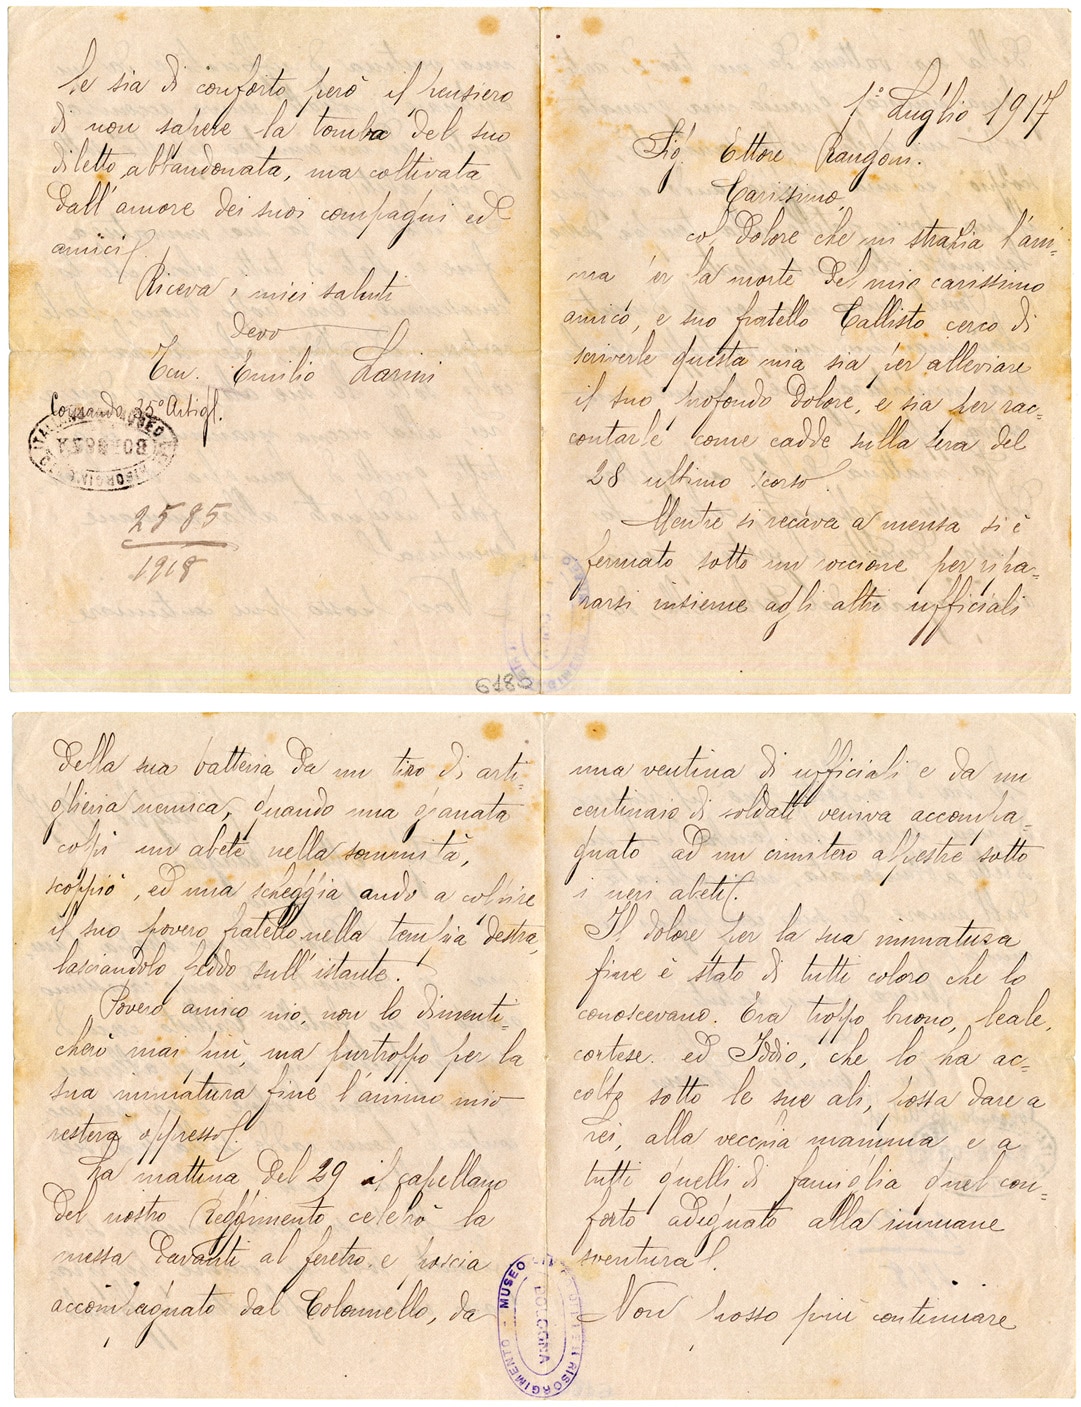 1° Luglio 1917
Sig. Ettore Rangoni.
Carissimo,
col dolore che mi strazia l'ani-
ma per la morte del mio carissimo
amico, e suo fratello Callisto cerco di
scriverle questa mia sia per alleviare
il suo profondo dolore, e sia per rac-
contarle come cadde sulla sera del
28 ultimo scorso.
Mentre si recava a mensa si è
fermato sotto un roccione per ripa-
rarsi insieme agli altri ufficiali
della sua batteria da un tiro di arti-
glieria nemica, quando una granata
colpì un abete nella sommità,
scoppiò, ed una scheggia andò a colpire
il suo povero fratello nella tempia destra
lasciandolo freddo sull'istante.
Povero amico mio, non lo dimenti-
cherò mai più, ma purtroppo per la
sua immatura fine l'animo mio
resterà oppresso.
La mattina del 29 il capellano
del nostro Reggimento celebrò la
messa davanti al feretro e poscia
accompagnato dal Colonnello, da
una ventina di ufficiali e da un
centinaio di soldati veniva accompa-
gnato ad un cimitero alpestre sotto
i neri abeti.
Il dolore per la sua immatura
fine è stato di tutti coloro che lo
conoscevano. Era troppo buono, leale,
cortese. ed Iddio, che lo ha ac-
colto sotto le sue ali, possa dare a
Lei, alla vecchia mamma e a
tutti quelli di famiglia quel con-
forto adeguato alla immane
sventura.
Non posso più continuare
Le sia di conforto però il pensiero
di non sapere la tomba del suo
diletto abbandonata, ma coltivata
dall'amore dei suoi compagni ed
amici.
Riceva i miei saluti
devo
Ten. Emilio Larini
Comando 35° Artigl.
2585
1918
6180
MUSEO
BOLOGNA
RISORGIMENTO